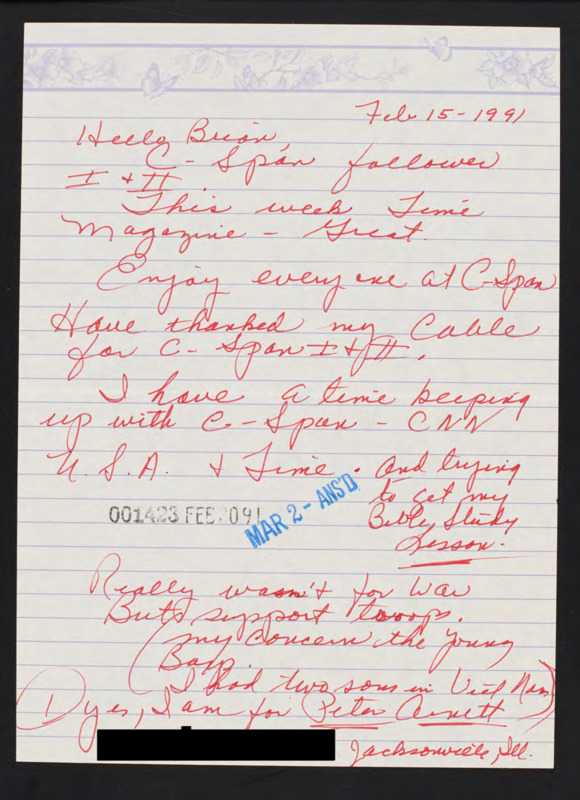 Feb 15-1991
Hello Brian,
C-Span follower
I & II.
This week Time
Magazine - Great.
Enjoy every one at C-Span
Have thanked my Cable
for C-Span I & II.
I have a time keeping
up with C-Span - CNN
U.S.A. & Time. and trying
to get my
Study
Lesson.
001423 FEB 20 91
MAR 2 - ANS'D
Really wasn't for War
But support troops.
(my concern the young
I had two sons in Viet Nam)
1) yes, I am for Peter Arnett
Jacksonville, Ill.